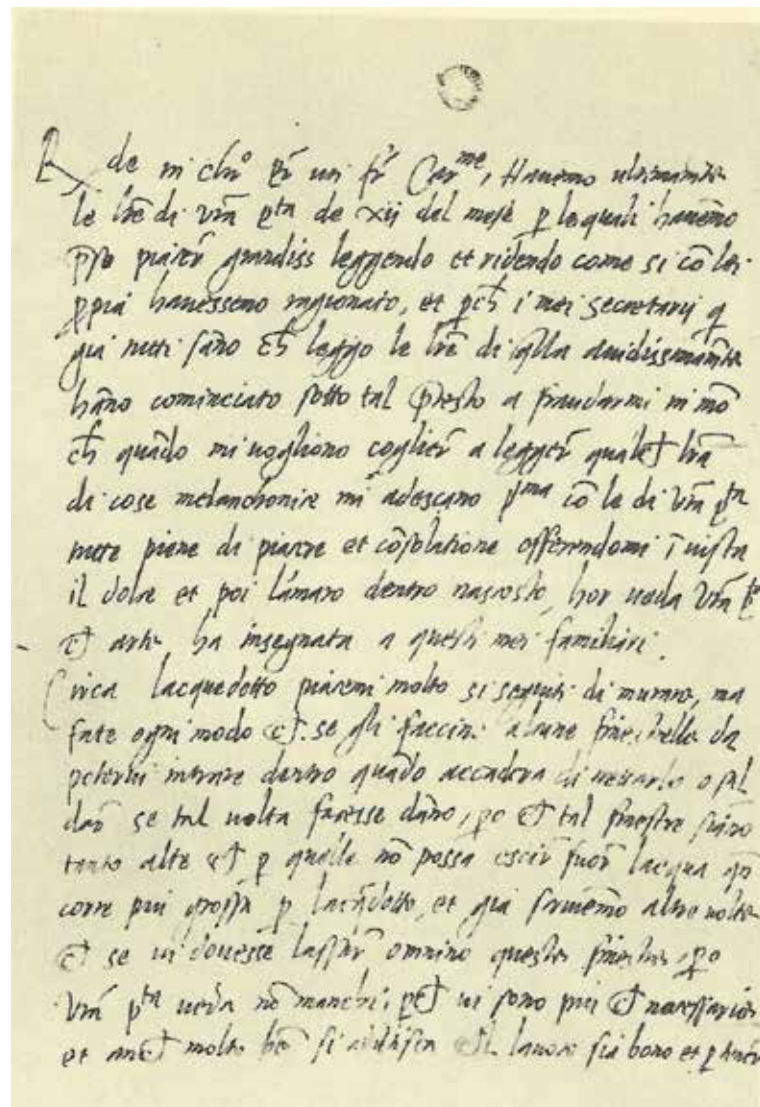 R de in chr̄o pr̄ uti fr̄ Carme, Havemo ultimamte
le lrē di vrā ptà de xii del mese p lequali havemo
pso piacer grandiss leggendo et ridendo come si cō lei
ppia havessemo ragionato, et pch i mei secretarij q
già tutti sāno ch leggo le lrē di qlla avidissimamte
hāno cominciato sotto tal ptesto a fraudarmi in mō
ch quādo mi vogliono coglier a legger qualch lrā
di cose melanchonice mi adescano pma cō le di vrā ptà
tutte piene di piacere et cōsolatione offerendomi ī vista
il dolce et poi lámaro dentro nascosto, hor veda vrā p
ch arte ha insegnata a questi mei familiari.
Circa lacquedotto piacemi molto si seguiti di murare, ma
fate ogni modo ch se gli faccino alcune finestrelle da
potervi intrare dentro quādo accaderà di nettarlo o sal
dar se tal volta facesse dāno, po ch tal finestre siāno
tanto alte ch p quelle nō possa escir fuor lacqua qn
corre piu grossa p lacqdotto, et già scrivemo altre volte
ch se vi dovesse lassar omnino queste finestre, po
vrā ptà veda nō manchi, pch vi sono piu ch necessarie
et anch molto bē si avertisca chl lavoro sia bono et p